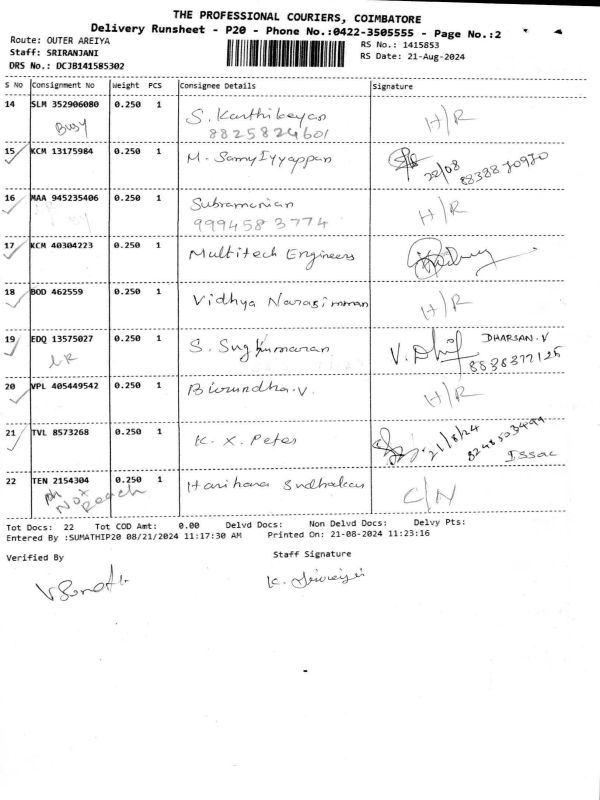 THE PROFESSIONAL COURIERS, COIMBATORE
Delivery Runsheet - P20 - Phone No.:0422-3505555 - Page No.:2
Route: OUTER AREIYA
RS No.: 1415853
Staff: SRIRANJANI
RS Date: 21-Aug-2024
DRS No.: DCJB141585302
S No Consignment No Weight PCS Consignee Details Signature
14 SLM 352906080 0.250 1 S. Karthikeyan H/R
Busy 8825824601
15 KCM 13175984 0.250 1 M. Samy Iyyappan
22/08 88388 70970
16 MAA 945235406 0.250 1 Subramanian H/R
9994583774
17 KCM 40304223 0.250 1 Multitech Engineers
18 BOD 462559 0.250 1 Vidhya Narasimman H/R
19 EDQ 13575027 0.250 1 S. Sugkumaran DHARSAN.V
8838377125
20 VPL 405449542 0.250 1 Birundha.V. H/R
21 TVL 8573268 0.250 1 K. X. Peter 21/8/24
Issac
22 TEN 2154304 0.250 1 Harihara Sudhakar C/N
ph Not Reach
Tot Docs: 22 Tot COD Amt: 0.00 Delvd Docs: Non Delvd Docs: Delvy Pts:
Entered By :SUMATHIP20 08/21/2024 11:17:30 AM Printed On: 21-08-2024 11:23:16
Verified By Staff Signature